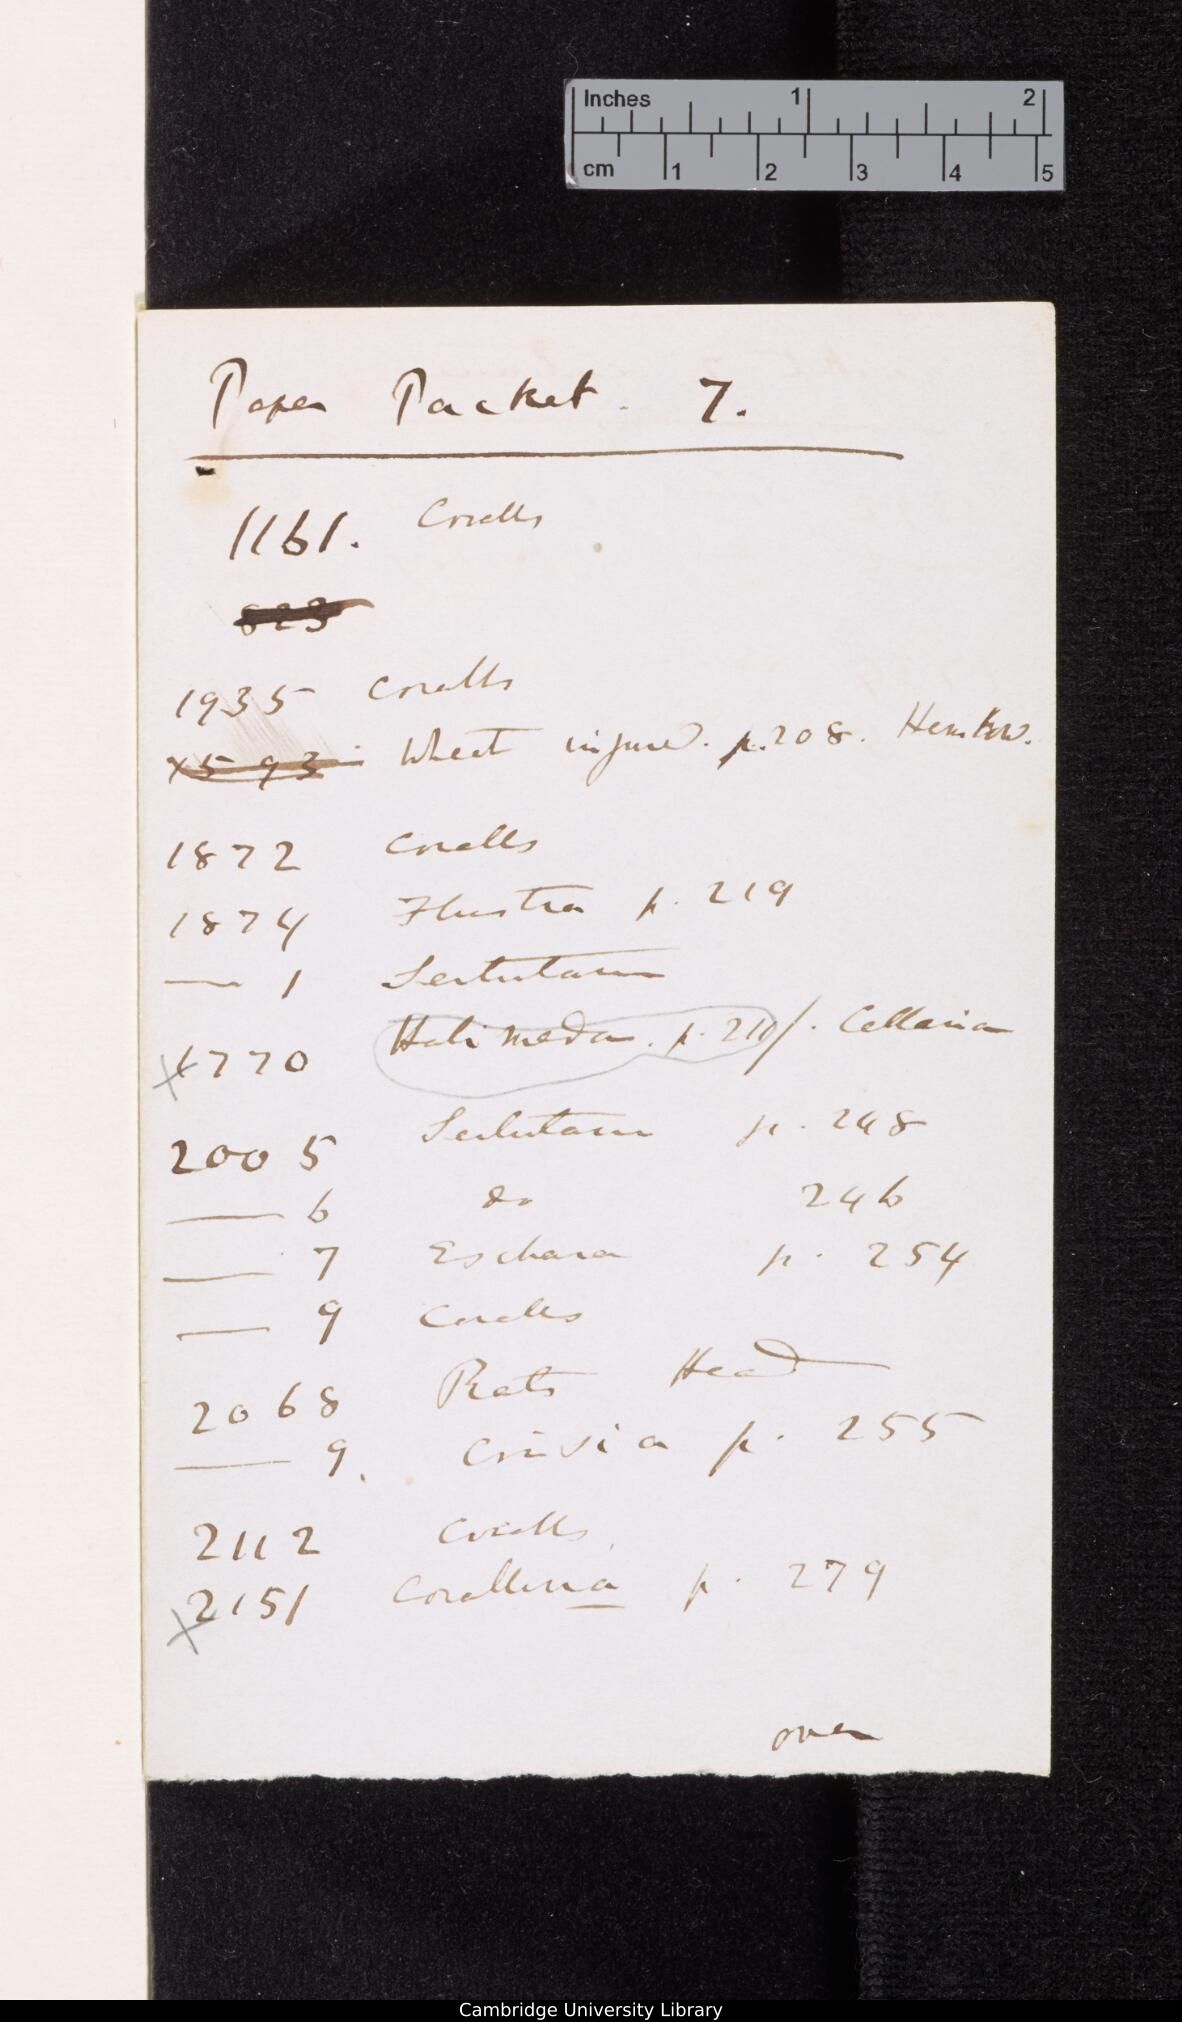 Inches 1 2
cm 1 2 3 4 5
Paper Packet. 7.
1161. Coralls
823
1935 Coralls
X593 Wheat injured. p.208. Henslow.
1872 Coralls
1874 Flustra p. 219
— 1 Sertularia
X1770 Halimeda. p. 211/. Cellaria
2005 Sertularia p. 248
— 6 do 246
— 7 Eschara p. 254
— 9 Coralls
2068 Rats Head
— 9. Crisia p. 255
2112 Coralls
X2151 Corallina p. 279
over
Cambridge University Library